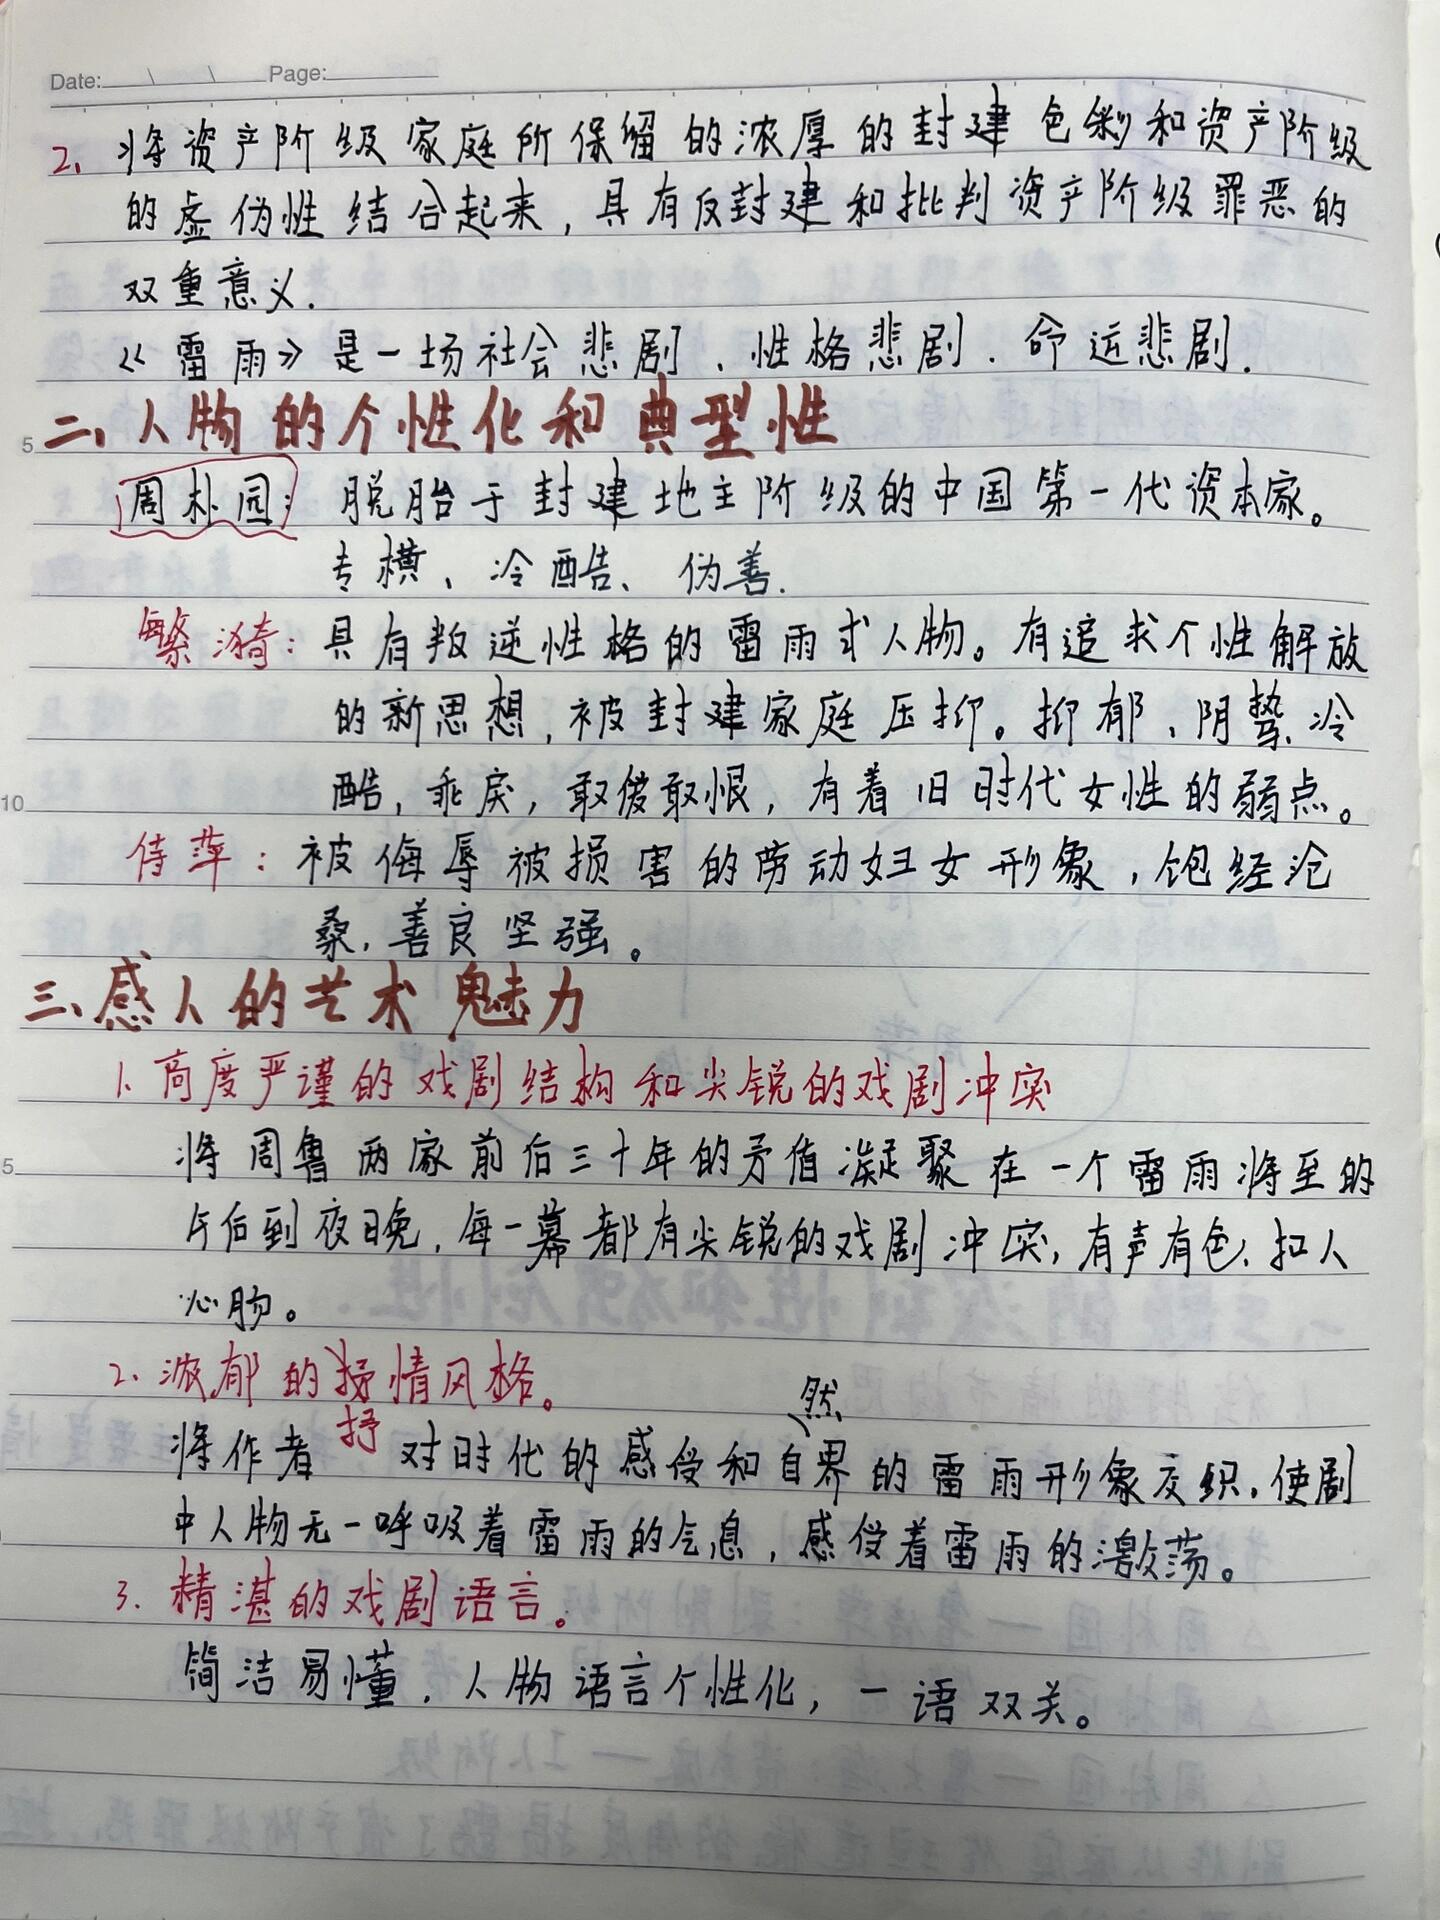 Date: \ \ Page:
2. 将资产阶级家庭所保留的浓厚的封建色彩和资产阶级
的虚伪性结合起来，具有反封建和批判资产阶级罪恶的
双重意义.
《雷雨》是一场社会悲剧、性格悲剧.命运悲剧.
5
二、人物的个性化和典型性
周朴园：脱胎于封建地主阶级的中国第一代资本家。
专横、冷酷、伪善.
繁漪：具有叛逆性格的雷雨式人物。有追求个性解放
的新思想，被封建家庭压抑。抑郁、阴鸷、冷
10
酷，乖戾，敢爱敢恨，有着旧时代女性的弱点。
侍萍：被侮辱被损害的劳动妇女形象，饱经沧
桑，善良坚强。
三、感人的艺术魅力
1. 高度严谨的戏剧结构和尖锐的戏剧冲突
5
将周鲁两家前后三十年的矛盾凝聚在一个雷雨将至的
午后到夜晚，每一幕都有尖锐的戏剧冲突，有声有色、扣人
心肠。
2. 浓郁的抒情风格。
抒
将作者对时代的感受和自然界的雷雨形象交织，使剧
中人物无一呼吸着雷雨的气息，感受着雷雨的激荡。
3. 精湛的戏剧语言。
简洁易懂，人物语言个性化，一语双关。